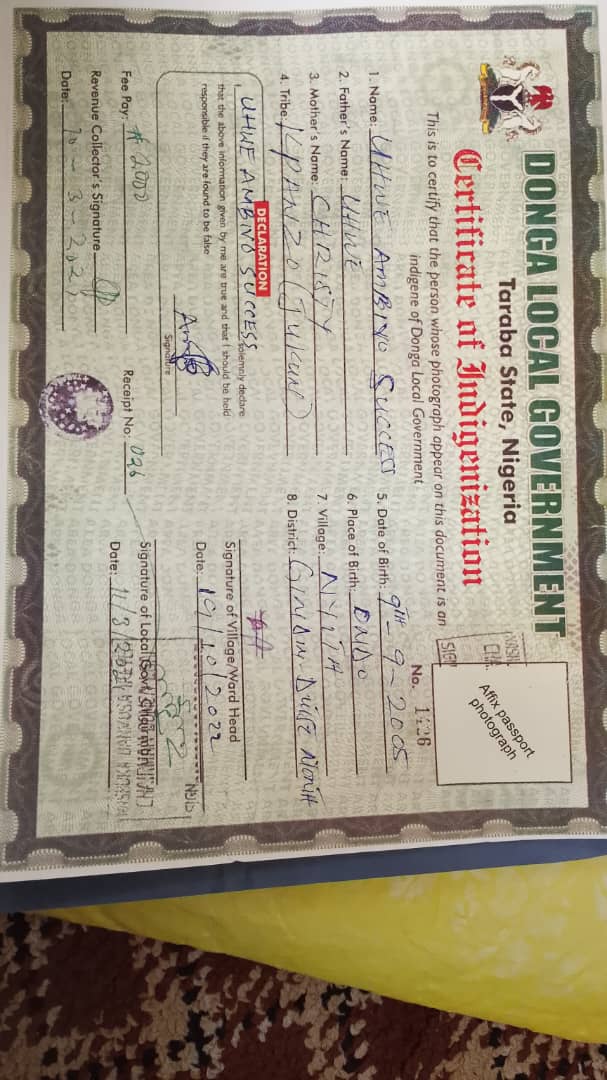 DONGA LOCAL GOVERNMENT
Taraba State, Nigeria
Certificate of Indigenization
This is to certify that the person whose photograph appear on this document is an
indigene of Donga Local Government
No. 1426
Affix passport
photograph
SIGN
1. Name: UHWE AMBINO SUCCESS
2. Father's Name: UHWE
3. Mother's Name: CHRISTY
4. Tribe: KPANZO (JUKUN)
5. Date of Birth: 9TH - 9 - 2005
6. Place of Birth:
7. Village: NYITA
8. District:
DECLARATION
I, UHWE AMBINO SUCCESS solemnly declare
that the above information given by me are true and that I should be held
responsible if they are found to be false
Signature
Signature of Village/Ward Head
Date: 19/10/2022
Fee Pay: ₦ 2000
Receipt No: 026
Revenue Collector's Signature
Date: 10 - 3 - 202
Signature of Local Govt.
Date: 11/3/